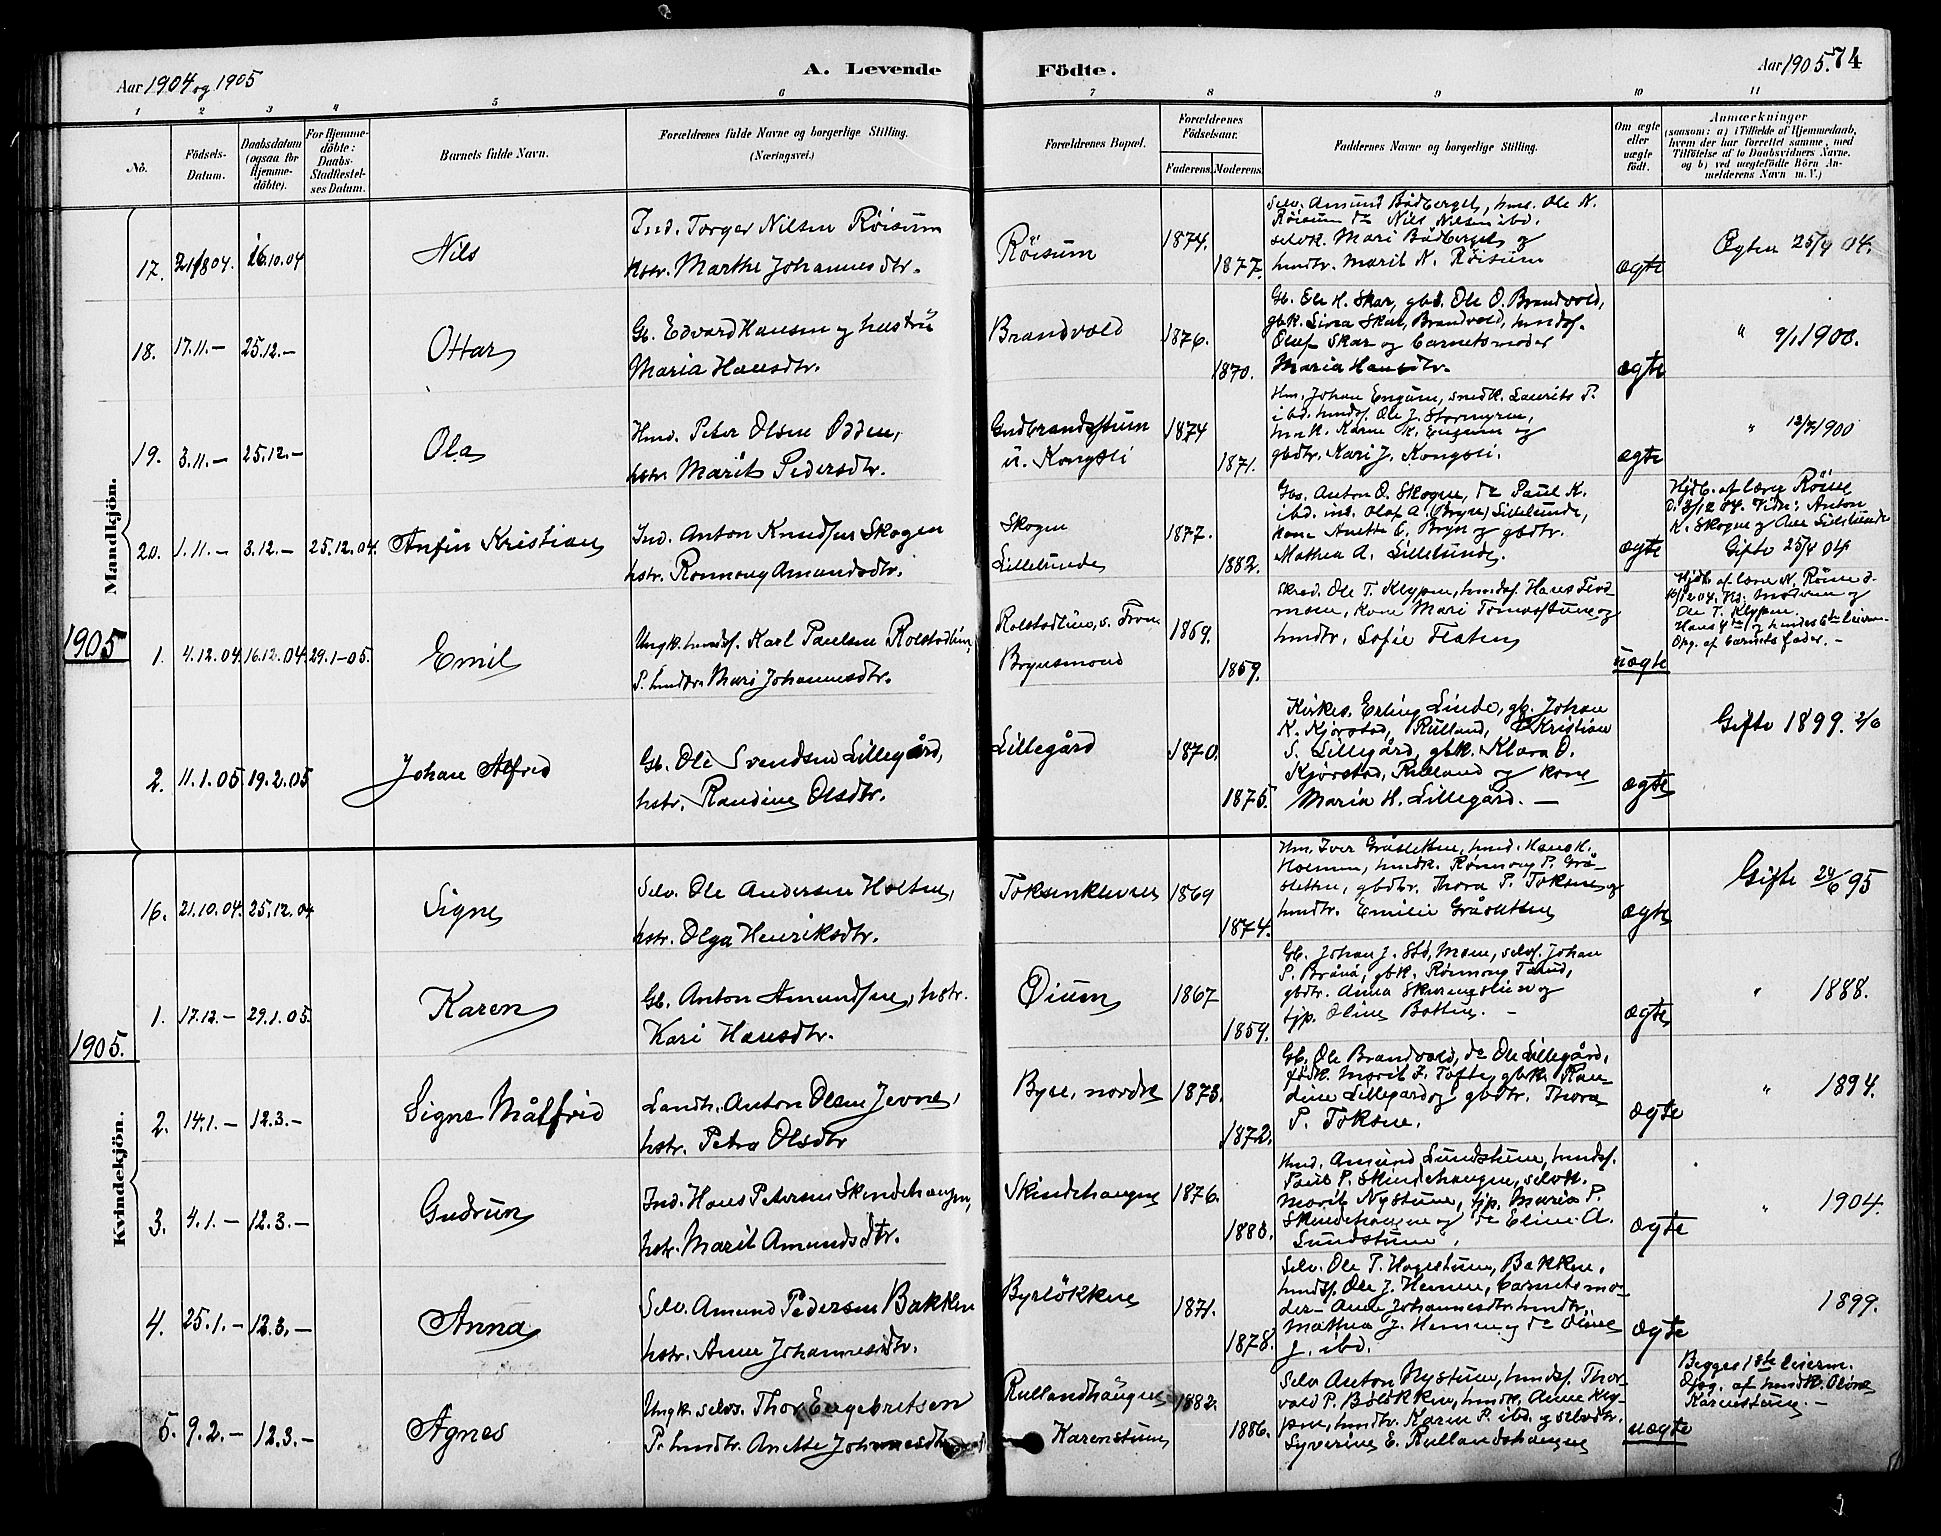 Aar 1904 og 1905
A. Levende Födte.
Aar 1905. 74
1 2 3 4 5 6 7 8 9 10 11
No.
Födsels-Datum.
Daabsdatum (ogsaa for Hjemmedöbte).
For Hjemmedöbte: Daabs-Stadfestelses Datum.
Barnets fulde Navn.
Forældrenes fulde Navne og borgerlige Stilling. (Næringsvei.)
Forældrenes Bopæl.
Forældrenes Födselsaar.
Faderens. Moderens.
Faddernes Navne og borgerlige Stilling.
Om ægte eller uægte födt.
Anmærkninger
(saasom: a) i Tilfælde af Hjemmedaab, hvem der har forrettet samme, med Tilföielse af to Daabsvidners Navne, og b) ved uægtefödte Börn Anmelderens Navn m. V.)
Mandkjön.
17. 21/8 04. 16.10.04 Nils
Ind. Torger Nilsen Röisum
hstr. Marthe Johannesdtr.
Röisum 1874. 1877.
Selv. Amund Bådberget, hms. Ole N.
Röisum do Nils Nilsen ibd.
selvk. Mari Bådberget og
hmdtr. Marit N. Röisum
ægte
Egtev. 25/4 04.
18. 17.11.- 25.12.- Ottar
Gb. Edvard Hansen og hustru
Maria Hansdtr.
Brandvold 1876. 1870.
Gb. Ole H. Skar, gbs. Ole O. Brandvold,
gbk. Lina Skar, Brandvold, hmdsf.
Oluf Skar og barnets moder
Maria Hansdtr.
ægte
" 9/1 1900.
19. 3.11.- 25.12.- Ola
Hmd. Peter Olsen Odden,
hstr. Marit Pedersdtr.
Gudbrandsstuen
u. Kongsli
1874 1871.
Hm. Johan Engum, snedk. Laurits P.
ibd. hmdsf. Ole J. Stormyren,
hmk. Karen K. Engum og
gbdtr. Kari J. Kongsli.
ægte
" 12/7 1900
20. 1.11.- 3.12.- 25.12.04. Anfin Kristian
Ind. Anton Knudsen Skogen
hstr. Ronnoug Amundsdtr.
Skogen
Lillelunde
1877. 1882.
Gbs. Anton O. Skogen, do Paul K.
ibd. ind. Olaf A. (Bryn) Lillelunde,
kone Anette C. Bryn og gbdtr.
Mathea A. Lillelunde.
ægte
Hjdb. af lærer Röine
d. 3/12 04. Vidn: Anton
K. Skogen og Ane Lillelunde
Gifte 25/4 04
1905
1. 4.12.04. 16.12.04. 29.1-05. Emil
Ungk. hmdsf. Karl Paulsen Rolstadlien,
P. hmdtr. Mari Johannesdtr.
Rolstadlien, s. Fron
Brynsmoen
1869. 1859.
Skred. Ole T. Klypen, hmdsf. Hans
moen, kone Mari Tomasstuen og
hmdtr. Sofie Flaten
uægte
Hjdb. af lærer N. Röine d.
16/12 04. Vs: Moderen og
Ole T. Klypen.
Hans 4de og hendes 6te leierm.
Opg. af barnets fader. -
2. 11.1.05 19.2.05 Johan Alfred
Gb. Ole Svendsen Lillegård,
hstr. Randine Olsdtr.
Lillegård 1870. 1875.
Kirkes. Erling Linde, gb. Johan
K. Kjörstad, Rulland, Kristian
S. Lillegård, gbk. Klara O.
Kjörstad, Rulland og kone
Maria H. Lillegård. -
ægte
Gifte 1899. 2/6
Kvindekjön.
16. 21.10.04. 25.12.04 Signe
Selv. Ole Andersen Holten,
hstr. Olga Henriksdtr.
Toksenklevene 1869 1874.
Hm. Iver Gråsletten, hmd. Hans H.
Holmen, hmdk. Rönnoug P. Grå-
sletten, gbdtr. Thora P. Toksen og
hmdtr. Emilie Gråsletten
ægte
Gifte 24/6 95
1905.
1. 17.12.- 29.1.05. Karen
Gb. Anton Amundsen, hstr.
Kari Hansdtr.
Öium 1867 1859.
Gb. Johan J. Moen, selvs. Johan
P. Brånå, gbk. Rönnoug Tand,
gbdtr. Anna Skurengslien og
tjp. Oline Botten. -
ægte
" 1888.
2. 14.1.- 12.3.- Signe Målfrid
Landh. Anton Olsen Jevne,
hstr. Petra Olsdtr
Byre, nordre 1873. 1872.
Gb. Ole Brandvold, do Ole Lillegård,
födk. Marit J. Tofte, gbk. Ran-
dine Lillegård og gbdtr. Thora
P. Toksen.
ægte
" 1894.
3. 4.1.- 12.3.- Gudrun
Ind. Hans Petersen Skindehaugen,
hstr. Marit Amundsdtr.
Skindehaugen 1876. 1883.
Hmd. Amund Lundstuen, hmdsf.
Paul P. Skindehaugen, selvk.
Marit Nystuen, tjp. Maria P.
Skindehaugen og do Eline A.
Lundstuen.
ægte
" 1904.
4. 25.1.- 12.3.- Anna
Selv. Amund Pedersen Bakken
hstr. Anne Johannesdtr.
Byrlökken 1871. 1878.
Selv. Ole T. Hagestuen, Bakken,
hmdsf. Ole J. Hemen, barnets mo-
der Ane Johannesdtr. hmdtr.
Mathea J. Hemen og do Oline
J. ibd.
ægte
1899.
5. 9.2.- 12.3.- Agnes
Ungk. selvs. Thor Engebretsen
P. hmdtr. Anette Johannesdtr.
Rullandhaugen
Karenstuen
1882. 1886.
Selv. Anton Nystuen, hmdsf. Thor-
vald P. Bölökken, hmdk. Anne Kly-
pen, hmdtr. Karen P. ibd. og selvdtr.
Syverine E. Rullandshaugen
uægte
Begges 1ste leierm.
Opg. af hmdk. Oline
Karenstuen. -